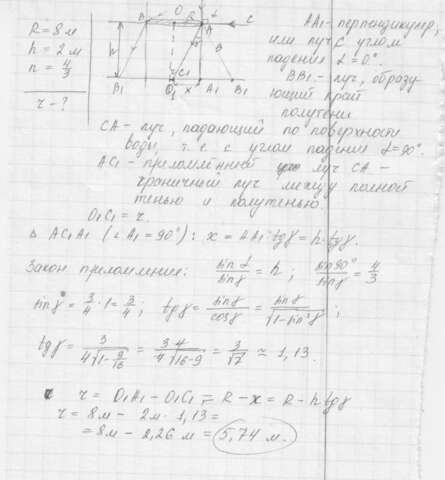 R = 8 м
h = 2 м
n = 4/3
r - ?
B O A α C
h
B₁ O₁ C₁ x A₁ B₁
AA₁ - перпендикуляр,
или луч с углом
падения α = 0°.
BB₁ - луч, образу
ющий край
полутени
CA - луч, падающий по поверхности
воды, т.е с углом падения α = 90°.
AC₁ - преломлённый луч CA -
граничный луч между полной
тенью и полутенью
O₁C₁ = r.
Δ AC₁A₁ (∠A₁ = 90°): x = AA₁·tgγ = h·tgγ.
Закон преломления: sinα/sinγ = n ; sin90°/sinγ = 4/3
sinγ = 3/4 · 1 = 3/4 ; tgγ = sinγ/cosγ = sinγ/√(1-sin²γ) ;
tgγ = 3/(4√(1-9/16)) = 3·4/(4√(16-9)) = 3/√7 ≈ 1,13.
r = O₁A₁ - O₁C₁ = R - x = R - h tgγ
r = 8м - 2м · 1,13 =
= 8м - 2,26 м = 5,74 м.